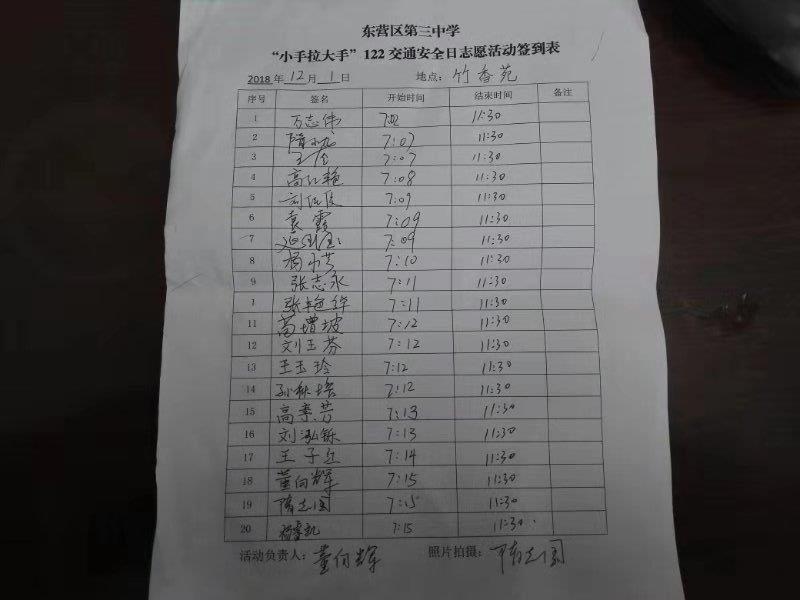 东营区第三中学
“小手拉大手”122 交通安全日志愿活动签到表
2018 年 12 月 1 日 地点：竹香苑
序号 签名 开始时间 结束时间 备注
1 万志伟 11:30
2 7:07 11:30
3 7:07 11:30
4 高红艳 7:08 11:30
5 7:09 11:30
6 袁霞 7:09 11:30
7 7:09 11:30
8 杨小芳 7:10 11:30
9 张志永 7:11 11:30
1 张艳 7:11 11:30
11 苟增坡 7:12 11:30
12 刘玉芬 7:12 11:30
13 王玉玲 7:12 11:30
14 孙秋 7:12 11:30
15 高素芳 7:13 11:30
16 刘泓铄 7:13 11:30
17 王子 7:14 11:30
18 董向辉 7:15 11:30
19 隋志国 7:15 11:30
20 7:15 11:30
活动负责人：董向辉 照片拍摄：隋志国